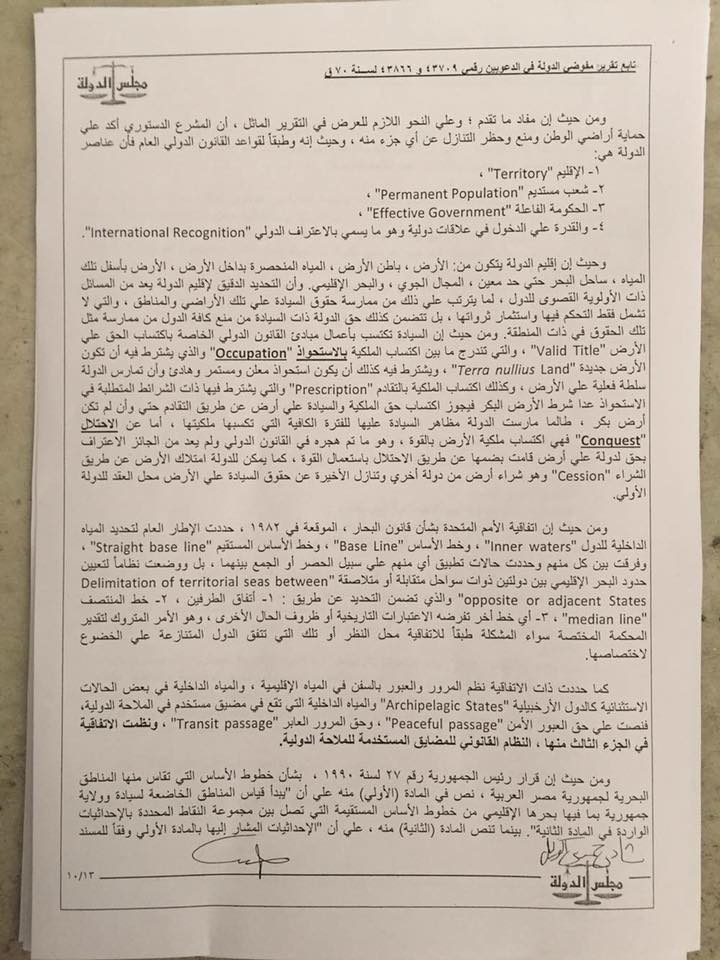 تابع تقرير مفوضي الدولة في الدعويين رقمي ٤٣٧٠٩ و ٤٣٨٦٦ لسنة ٧٠ ق
مجلس الدولة
ومن حيث إن مفاد ما تقدم ؛ وعلي النحو اللازم للعرض في التقرير الماثل ، أن المشرع الدستوري أكد علي
حماية أراضي الوطن ومنع وحظر التنازل عن أي جزء منه ، وحيث إنه وطبقاً لقواعد القانون الدولي العام فأن عناصر
الدولة هي:
١- الإقليم "Territory" ،
٢- شعب مستديم "Permanent Population" ،
٣- الحكومة الفاعلة "Effective Government" ،
٤- والقدرة علي الدخول في علاقات دولية وهو ما يسمي بالاعتراف الدولي "International Recognition".
وحيث إن إقليم الدولة يتكون من: الأرض ، باطن الأرض ، المياه المنحصرة بداخل الأرض ، الأرض بأسفل تلك
المياه ، ساحل البحر حتي حد معين ، المجال الجوي ، والبحر الإقليمي. وأن التحديد الدقيق لإقليم الدولة يعد من المسائل
ذات الأولوية القصوى للدول ، لما يترتب علي ذلك من ممارسة حقوق السيادة علي تلك الأراضي والمناطق ، والتي لا
تشمل فقط التحكم فيها واستثمار ثرواتها ، بل تتضمن كذلك حق الدولة ذات السيادة من منع كافة الدول من ممارسة مثل
تلك الحقوق في ذات المنطقة. ومن حيث إن السيادة تكتسب بأعمال مبادئ القانون الدولي الخاصة باكتساب الحق علي
الأرض "Valid Title" ، والتي تندرج ما بين اكتساب الملكية بالاستحواذ "Occupation" والذي يشترط فيه أن تكون
الأرض جديدة "Terra nullius Land" ، ويشترط فيه كذلك أن يكون استحواذ معلن ومستمر وهادئ وأن تمارس الدولة
سلطة فعلية علي الأرض ، وكذلك اكتساب الملكية بالتقادم "Prescription" والتي يشترط فيها ذات الشرائط المتطلبة في
الاستحواذ عدا شرط الأرض البكر فيجوز اكتساب حق الملكية والسيادة علي أرض عن طريق التقادم حتي وأن لم تكن
أرض بكر ، طالما مارست الدولة مظاهر السيادة عليها للفترة الكافية التي تكسبها ملكيتها ، أما عن الاحتلال
"Conquest" فهي اكتساب ملكية الأرض بالقوة ، وهو ما تم هجره في القانون الدولي ولم يعد من الجائز الاعتراف
بحق لدولة علي أرض قامت بضمها عن طريق الاحتلال باستعمال القوة ، كما يمكن للدولة امتلاك الأرض عن طريق
الشراء "Cession" وهو شراء أرض من دولة أخري وتنازل الأخيرة عن حقوق السيادة علي الأرض محل العقد للدولة
الأولي.
ومن حيث إن اتفاقية الأمم المتحدة بشأن قانون البحار ، الموقعة في ١٩٨٢ ، حددت الإطار العام لتحديد المياه
الداخلية للدول "Inner waters" ، وخط الأساس "Base Line" ، وخط الأساس المستقيم "Straight base line" ،
وفرقت بين كل منهم وحددت حالات تطبيق أي منهم علي سبيل الحصر أو الجمع بينهما ، بل ووضعت نظاماً لتعيين
حدود البحر الإقليمي بين دولتين ذوات سواحل متقابلة أو متلاصقة "Delimitation of territorial seas between
opposite or adjacent States" والذي تضمن التحديد عن طريق : ١- أتفاق الطرفين ، ٢- خط المنتصف
"median line" ، ٣- أي خط أخر تفرضه الاعتبارات التاريخية أو ظروف الحال الأخرى ، وهو الأمر المتروك لتقدير
المحكمة المختصة سواء المشكلة طبقاً للاتفاقية محل النظر أو تلك التي تتفق الدول المتنازعة علي الخضوع
لاختصاصها.
كما حددت ذات الاتفاقية نظم المرور والعبور بالسفن في المياه الإقليمية ، والمياه الداخلية في بعض الحالات
الاستثنائية كالدول الأرخبيلية "Archipelagic States" والمياه الداخلية التي تقع في مضيق مستخدم في الملاحة الدولية،
فنصت علي حق العبور الأمن "Peaceful passage" ، وحق المرور العابر "Transit passage" ، ونظمت الاتفاقية
في الجزء الثالث منها ، النظام القانوني للمضايق المستخدمة للملاحة الدولية.
ومن حيث إن قرار رئيس الجمهورية رقم ٢٧ لسنة ١٩٩٠ ، بشأن خطوط الأساس التي تقاس منها المناطق
البحرية لجمهورية مصر العربية ، نص في المادة (الأولي) منه علي أن "يبدأ قياس المناطق الخاضعة لسيادة وولاية
جمهورية بما فيها بحرها الإقليمي من خطوط الأساس المستقيمة التي تصل بين مجموعة النقاط المحددة بالإحداثيات
الواردة في المادة الثانية". بينما تنص المادة (الثانية) منه ، علي أن "الإحداثيات المشار إليها بالمادة الأولي وفقاً للمسند
١٠/١٣
مجلس الدولة